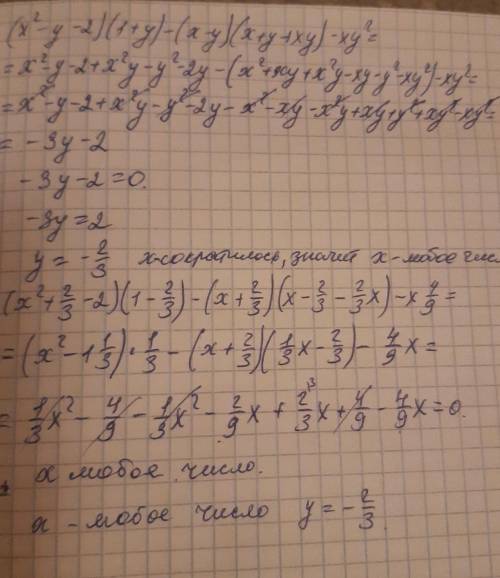 (x²-y-2)(1+y)-(x-y)(x+y+xy)-xy²=
=x²-y-2+x²y-y²-2y-(x²+xy+x²y-xy-y²-xy²)-xy²=
=x²-y-2+x²y-y²-2y-x²-xy-x²y+xy+y²+xy²-xy²=
= -3y-2
-3y-2=0.
-3y=2
y= -2/3 x-сократилось, значит x-любое числ
(x²+2/3-2)(1-2/3)-(x+2/3)(x-2/3-2/3x)-x4/9=
=(x²-1 1/3)·1/3-(x+2/3)(1/3x-2/3)-4/9x=
=1/3x²-4/9-1/3x²-2/9x+2/3³x+4/9-4/9x=0.
x любое число.
x - любое число y= -2/3.